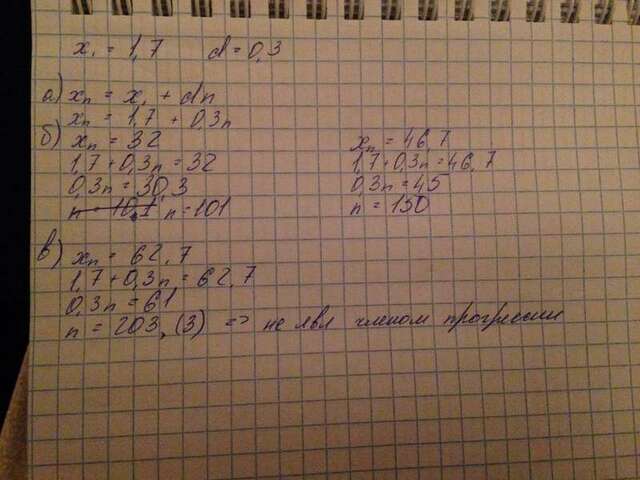 x₁ = 1,7 d = 0,3
а) xₙ = x₁ + dn
xₙ = 1,7 + 0,3n
б) xₙ = 32
1,7 + 0,3n = 32
0,3n = 30,3
n = 10,1 n = 101
xₙ = 46,7
1,7 + 0,3n = 46,7
0,3n = 45
n = 150
в) xₙ = 62,7
1,7 + 0,3n = 62,7
0,3n = 61
n = 203,(3) => не явл членом прогрессии